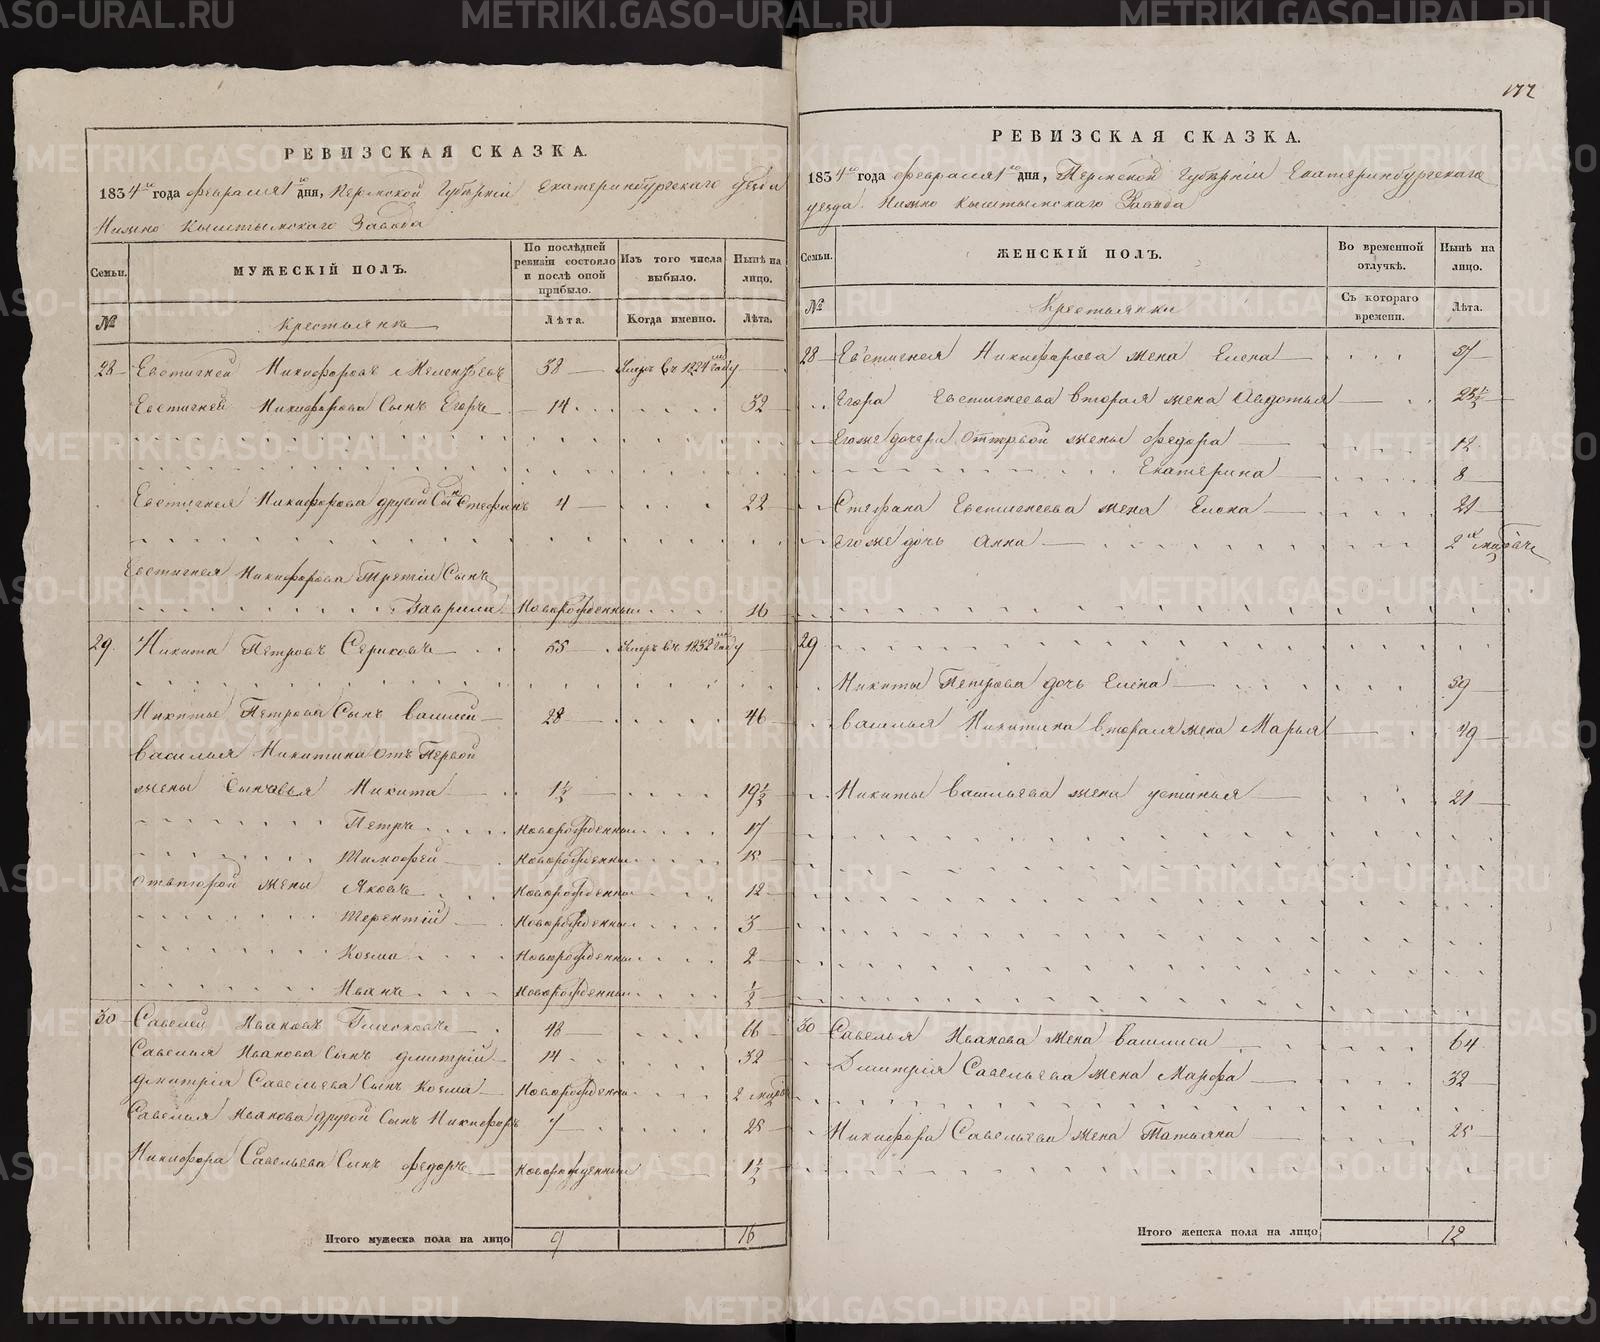 РЕВИЗСКАЯ СКАЗКА.
1834го года февраля 1го дня, Пермской Губерніи Екатеринбургскаго уезда
Нижно Кыштымскаго Завода
Семьи.
МУЖЕСКІЙ ПОЛЪ.
По послѣдней ревизіи состояло и послѣ оной прибыло.
Изъ того числа выбыло.
Нынѣ на лицо.
№
Крестьянъ
Лѣта.
Когда именно.
Лѣта.
28 Евстигней Никифоровъ 38 Умеръ въ 1824м году
Евстигнея Никифорова Сынъ Егоръ 14 32
Евстигнея Никифорова другой Сынъ Стефанъ 4 22
Евстигнея Никифорова Третій Сынъ
Гаврила Новорожденный 16
29 Никита Петровъ Сериковъ 55 Умеръ въ 1832м году
Никиты Петрова Сынъ Василей 28 46
Василья Никитина отъ Первой
жены Сыновья Никита 1½ 19½
Петръ Новорожденный 17
Тимофей Новорожденный 15
От второй жены Яковъ Новорожденный 12
Терентій Новорожденный 3
Козма Новорожденный 2
Иванъ Новорожденный ½
30 Савелей Ивановъ 48 66
Савелья Иванова Сынъ Дмитрій 14 32
Дмитрія Савельева Сынъ Козма Новорожденный 2
Савелья Иванова другой Сынъ Никифоръ 7 25
Никифора Савельева Сынъ Федоръ Новорожденный 1½
Итого мужеска пола на лицо 9 16
177
РЕВИЗСКАЯ СКАЗКА.
1834го года февраля 1го дня, Пермской Губерніи Екатеринбургскаго
уезда Нижно Кыштымскаго Завода
Семьи.
ЖЕНСКІЙ ПОЛЪ.
Во временной отлучкѣ.
Нынѣ на лицо.
№
Крестьянки
Съ котораго времени.
Лѣта.
28 Евстигнея Никифорова жена Елена 57
Егора Евстигнеева вторая жена Авдотья 25½
Егоже дочери от первой жены Федора 12
Екатерина 8
Стефана Евстигнеева жена Елена 21
Егоже дочь Анна 2
29
Никиты Петрова дочь Елена 39
Василья Никитина вторая жена Марья 49
Никиты Васильева жена Устинья 21
30 Савелья Иванова жена Василиса 64
Дмитрія Савельева жена Марфа 32
Никифора Савельева жена Татьяна 25
Итого женска пола на лицо 12
METRIKI.GASO-URAL.RU